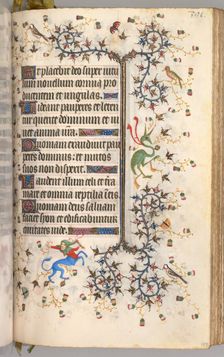 Et placebit deo super vitu
lum novellum cornua pro
ducentem et ungulas.
Videant pauperes et leten
tur querite dominum et vi
vet anima vr̄a.
Quoniam exaudivit pau
peres dominus: et vinctos
suos non despexit.
Laudent illum celi et ter
ra mare et omnia reptilia ī eis.
Quoniam deus salvam
faciet syon et edificabuntur
civitates iude.